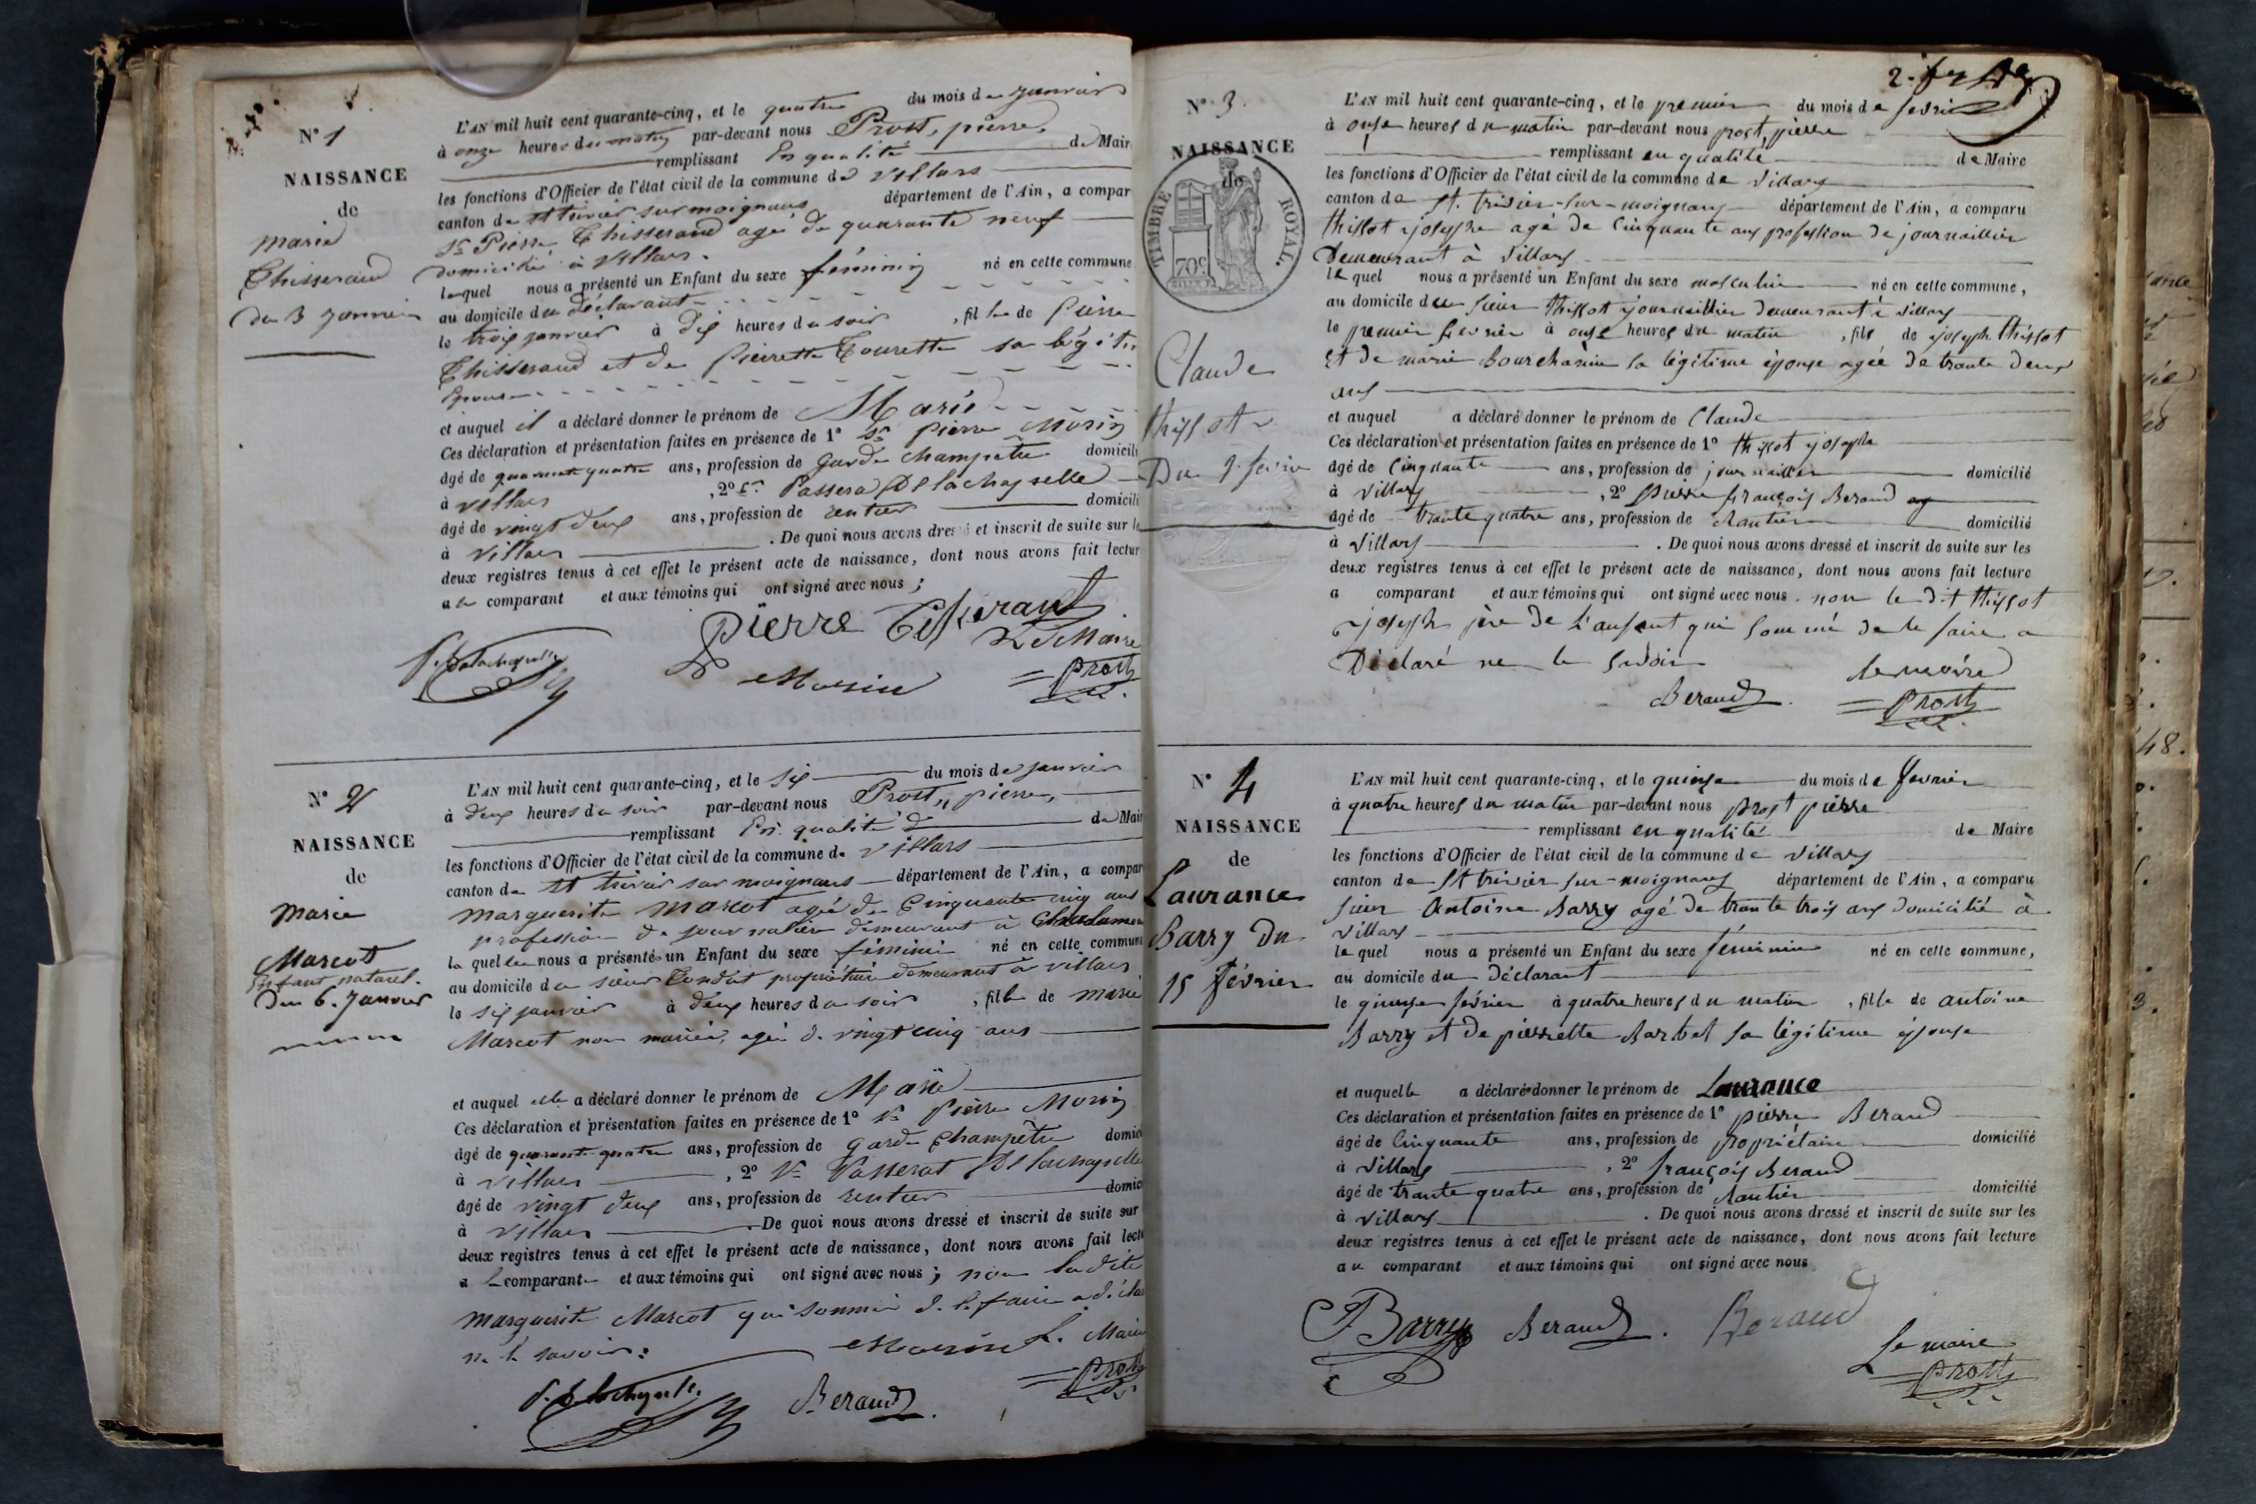 N° 1
NAISSANCE
de
marie
Thisserand
du 3 janvier
L'AN mil huit cent quarante-cinq, et le quatre du mois de janvier
à onze heures du matin par-devant nous Prost, pierre,
remplissant En qualité de Maire
les fonctions d'Officier de l'état civil de la commune de villars
canton de st trivier sur moignans département de l'Ain, a compar
Sr Pierre Thisserand agé de quarante neuf
domicilié à Villars.
lequel nous a présenté un Enfant du sexe féminin né en cette commune
au domicile du déclarant
le trois janvier à dix heures du soir, fille de Pierre
Thisserand et de Pierrette Tourette sa légiti
Epouse
et auquel il a déclaré donner le prénom de Marie
Ces déclaration et présentation faites en présence de 1° Sr Pierre Morin
âgé de quarante quatre ans, profession de Garde champêtre domicili
à villars, 2° Sr Passera Delachapelle
âgé de vingt deux ans, profession de rentier domicili
à villars. De quoi nous avons dressé et inscrit de suite sur le
deux registres tenus à cet effet le présent acte de naissance, dont nous avons fait lectur
au comparant et aux témoins qui ont signé avec nous ;
pierre Tisserant
Le Maire
Morin
Prost
N° 2
NAISSANCE
de
marie
Marcot
Enfant naturel.
Du 6. Janvier
L'AN mil huit cent quarante-cinq, et le six du mois de janvier
à deux heures du soir par-devant nous Prost, pierre,
remplissant En qualité de Mair
les fonctions d'Officier de l'état civil de la commune de villars
canton de st trivier sur moignans département de l'Ain, a compar
marguerite marcot agée de Cinquante cinq ans
profession de journalier demeurant à
laquelle nous a présenté un Enfant du sexe féminin né en cette commune
au domicile du sieur Condat propriétaire demeurant à villars
le six janvier à deux heures du soir, fille de marie
Marcot non mariée, agée de vingt cinq ans
et auquel elle a déclaré donner le prénom de Marie
Ces déclaration et présentation faites en présence de 1° Sr Pierre Morin
âgé de quarante quatre ans, profession de garde Champêtre domici
à villars, 2° Sr Passerat Delachapelle
âgé de vingt deux ans, profession de rentier domici
à villars. De quoi nous avons dressé et inscrit de suite sur
deux registres tenus à cet effet le présent acte de naissance, dont nous avons fait lectu
a L comparante et aux témoins qui ont signé avec nous ; non ladite
marguerite Marcot qui sommée de le faire a décla
ne le savoir.
Morin L. Maire
Beraud
Prost
N° 3
NAISSANCE
de
TIMBRE ROYAL.
70c
Claude
thissot
Du 1 fevrier
L'AN mil huit cent quarante-cinq, et le premier du mois de fevrier
à onse heures du matin par-devant nous prost, pierre
remplissant en qualité de Maire
les fonctions d'Officier de l'état civil de la commune de villars
canton de st. trivier-sur-moignans département de l'Ain, a comparu
thissot joseph agé de Cinquante ans profession de journaillier
Demeurant à villars
lequel nous a présenté un Enfant du sexe masculin né en cette commune,
au domicile du sieur thissot journaillier demeurant à villars
le premier fevrier à onse heures du matin, fils de joseph thissot
et de marie Bourchanin sa légitime épouse agée de trante deux
ans
et auquel a déclaré donner le prénom de Claude
Ces déclaration et présentation faites en présence de 1° thissot joseph
âgé de Cinquante ans, profession de journaillier domicilié
à villars, 2° pierre françois Beraud
âgé de trante quatre ans, profession de Rantier domicilié
à villars. De quoi nous avons dressé et inscrit de suite sur les
deux registres tenus à cet effet le présent acte de naissance, dont nous avons fait lecture
a comparant et aux témoins qui ont signé avec nous. non le dit thissot
joseph père de l'anfent qui sommé de le faire a
Déclaré ne le savoir
le maire
Beraud
Prost
N° 4
NAISSANCE
de
Laurance
Barry Du
15 février
L'AN mil huit cent quarante-cinq, et le quinse du mois de fevrier
à quatre heures du matin par-devant nous prost pierre
remplissant en qualité de Maire
les fonctions d'Officier de l'état civil de la commune de villars
canton de st trivier sur-moignans département de l'Ain, a comparu
sieur Antoine Barry agé de trante trois ans domicilié à
villars
lequel nous a présenté un Enfant du sexe féminin né en cette commune,
au domicile du déclarant
le quinse février à quatre heures du matin, fille de antoine
Barry et de pierrette Barbet sa légitime épouse
et auquelle a déclaré donner le prénom de Laurance
Ces déclaration et présentation faites en présence de 1° pierre Beraud
âgé de Cinquante ans, profession de propriétaire domicilié
à villars, 2° françois Beraud
âgé de trante quatre ans, profession de Rantier domicilié
à villars. De quoi nous avons dressé et inscrit de suite sur les
deux registres tenus à cet effet le présent acte de naissance, dont nous avons fait lecture
au comparant et aux témoins qui ont signé avec nous
Barry Beraud. Beraud
Le maire
Prost